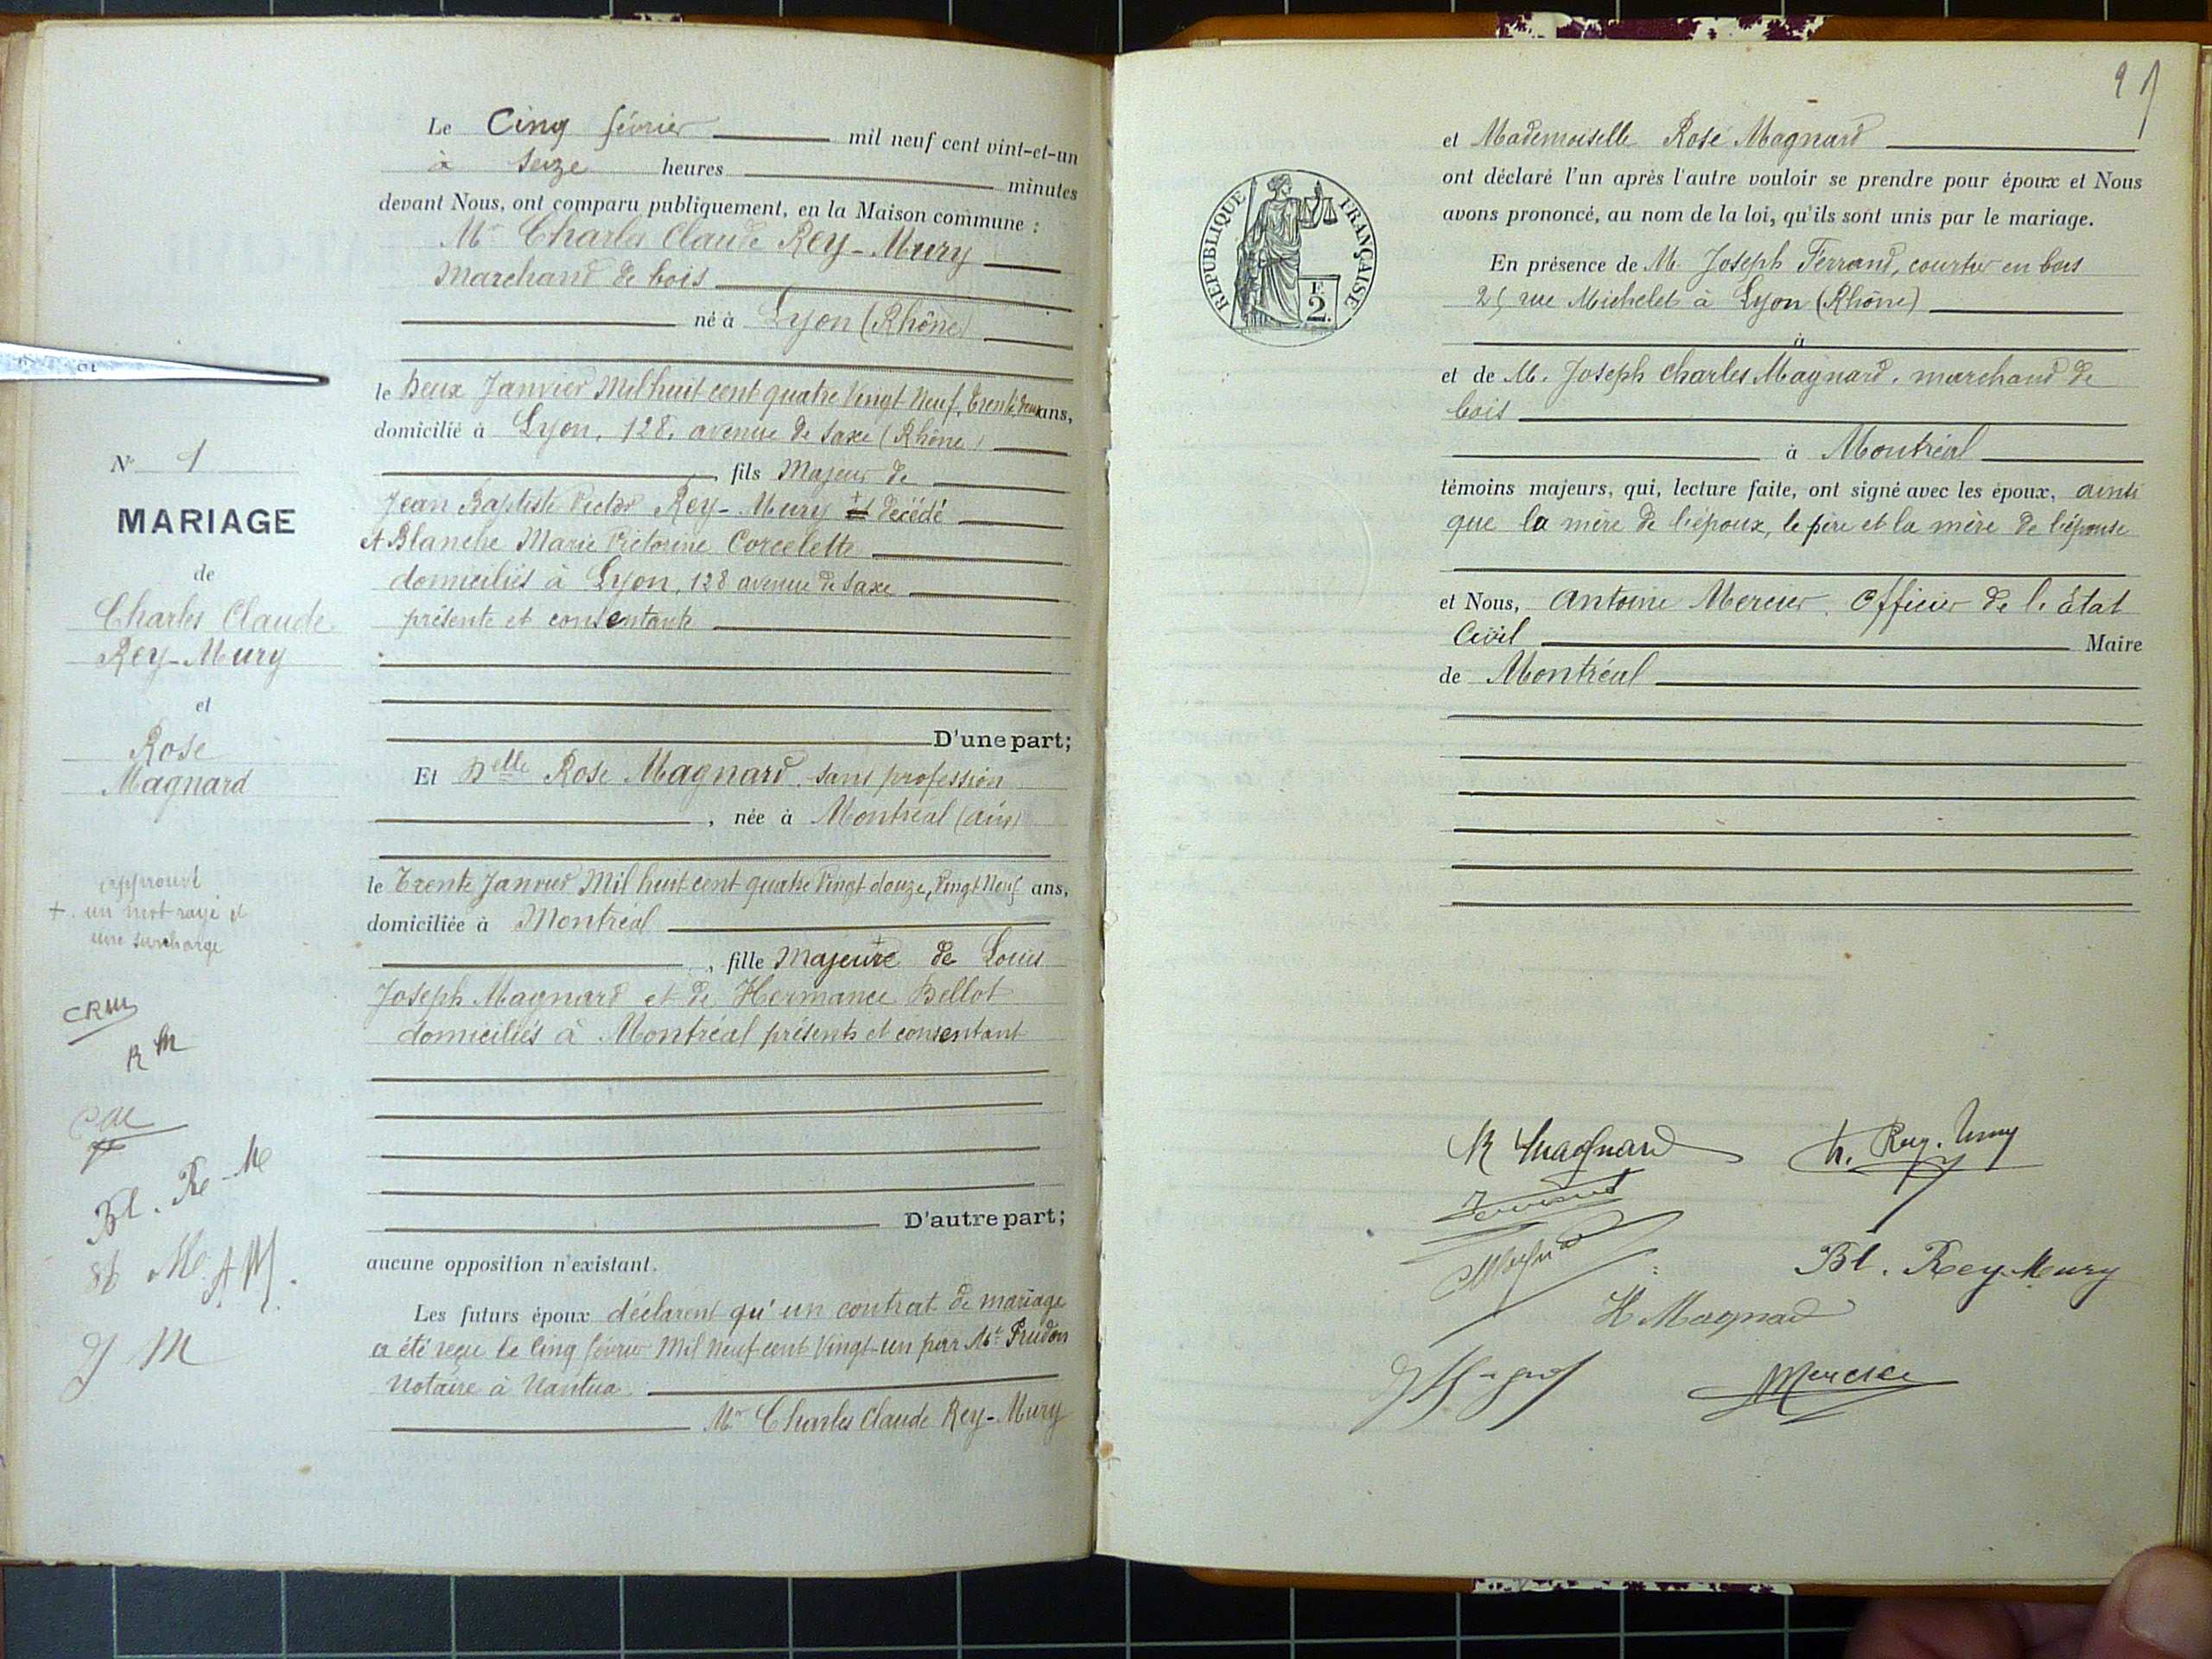 Le Cinq février mil neuf cent vint-et-un
à seize heures minutes
devant Nous, ont comparu publiquement, en la Maison commune :
Mr Charles Claude Rey-Mury
Marchand de bois
né à Lyon (Rhône)
le Deux Janvier Mil huit cent quatre Vingt Neuf, trente deux ans,
domicilié à Lyon, 128, avenue de Saxe (Rhône)
, fils Majeur de
Jean Baptiste Victor Rey-Mury + et décédé
et Blanche Marie Victorine Corcelette
domiciliés à Lyon, 128 avenue de Saxe
présente et consentante
D'une part;
Et Delle Rose Magnard, sans profession
, née à Montréal (ain)
le Trente Janvier Mil huit cent quatre Vingt douze, Vingt Neuf ans,
domiciliée à Montréal
, fille Majeure + de Louis
Joseph Magnard et de Hermance Bellot
domiciliés à Montréal présents et consentant
D'autre part;
aucune opposition n'existant.
Les futurs époux déclarent qu'un contrat de mariage
a été reçu le Cinq février Mil Neuf cent Vingt-un par Mt Prudon
Notaire à Nantua
Mr Charles Claude Rey-Mury
No 1
MARIAGE
de
Charles Claude
Rey-Mury
et
Rose
Magnard
approuvé
+. un mot rayé et
une surcharge
CRM
R M
Bl. Re-M
A M.
J M
RÉPUBLIQUE FRANÇAISE
F.
2.
et Mademoiselle Rose Magnard
ont déclaré l'un après l'autre vouloir se prendre pour époux et Nous
avons prononcé, au nom de la loi, qu'ils sont unis par le mariage.
En présence de M. Joseph Ferrand, courtier en bois
rue Michelet à Lyon (Rhône)
à
et de M. Joseph Charles Magnard, marchand de
bois
à Montréal
témoins majeurs, qui, lecture faite, ont signé avec les époux, ainsi
que la mère de l'époux, le père et la mère de l'épouse
et Nous, Antoine Mercier, Officier de l'état
Civil Maire
de Montréal
R Magnard
Rey-Mury
Ferrand
Magnard
Bl. Rey-Mury
H Magnard
Mercier